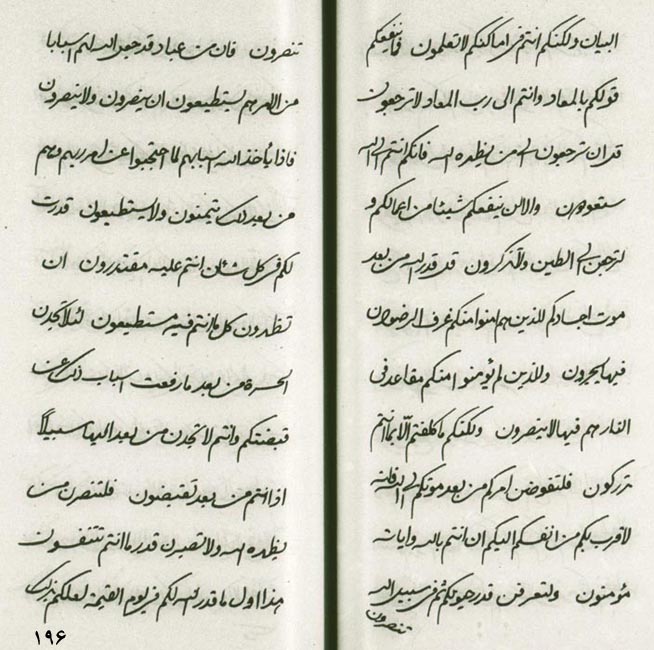 البيان ولكنكم انتم في اماكنكم لا تعلمون فاينفعكم
قولكم بالمعاد وانتم الى رب المعاد لا ترجعون
قد ان ترجعون الى من يظهره الله فانكم انتم الى الله
ستعودون والا لن ينفعكم شيئا من اعمالكم و
لترجعن الى الطين ولا تذكرون قد قدر الله من بعد
موت اجسادكم للذين هم امنوا منكم غرف الرضوان
فيها يحبرون وللذين لم يؤمنوا منكم مقاعد في
النار هم فيها لا ينصرون ولكنكم ما كلفتم الا بما انتم
تدركون فلتفوضن امركم من بعد موتكم الى الله فانه
لاقرب بكم من انفسكم اليكم ان انتم بالله واياته
مؤمنون ولتعرفن قدر حيوتكم ثم في سبيل الله
تنصرون
تنصرون فان من عباد قد جعل الله لهم اسبابا
من الامر هم يستطيعون ان ينصرون ولا ينصرون
فاذا يأخذ الله اسبابهم لما احتجبوا عن امر ربهم وهم
من بعد ذلك يتمنون ولا يستطيعون قدرت
لكم في كل شئان انتم عليه مقتدرون ان
تظهرون كل ما انتم فيه مستطيعون لئلا تجدن
الحسرة من بعد ما رفعت اسباب ذلك عن
قبضتكم وانتم لا تجدن من بعد اليها سبيلا
اذا انتم من بعد تقبضون فلتنصرن من
يظهره الله ولا تصبرن قدر ما انتم تتنفسون
هذا اول ما قدر الله لكم في يوم القيمة لعلكم بذلك
۱۹۶